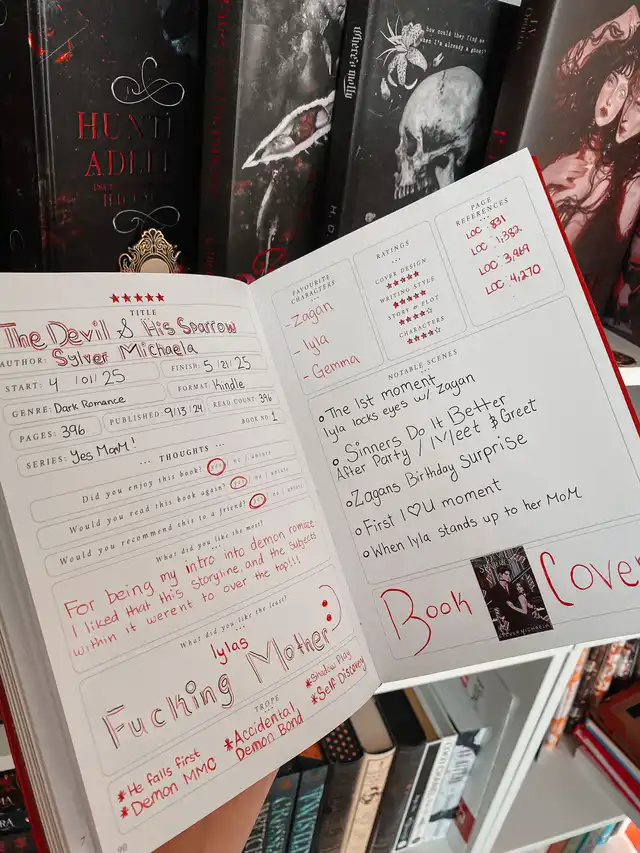 HUNT
ADEL
how could they find me
when I'm already a ghost?
Where's Molly
H. D.
TITLE
The Devil & His Sparrow
AUTHOR: Sylver Michaela
START: 4 /01/25
FINISH: 5 /21/25
GENRE: Dark Romance
FORMAT: Kindle
PAGES: 396
PUBLISHED: 9/13/24
READ COUNT: 396
SERIES: Yes MaM!
BOOK NO: 1
... THOUGHTS ...
Did you enjoy this book? yes / no / unsure
Would you read this book again? yes / no / unsure
Would you recommend this to a friend? yes / no / unsure
What did you like the most?
For being my intro into demon romace
I liked that this storyline, and the subjects
within it werent to over the top!!!
What did you like the least?
lylas
Fucking Mother :)
TROPE
*He falls first
*Demon MMC
*Accidental
Demon Bond
*Shadow Play
*Self Discovery
90
FAVOURITE
CHARACTERS
- Zagan
- lyla
- Gemma
RATINGS
COVER DESIGN
WRITING STYLE
STORY & PLOT
CHARACTERS
PAGE
REFERENCES
LOC: 831
LOC: 1,382
LOC: 3,969
LOC: 4,270
NOTABLE SCENES
The 1st moment
lyla locks eyes w/ Zagan
Sinners Do It Better
After Party / Meet & Greet
Zagans Birthday Surprise
First I ♡ U moment
When lyla stands up to her MoM
Book Cover
SYLVER MICHAELA